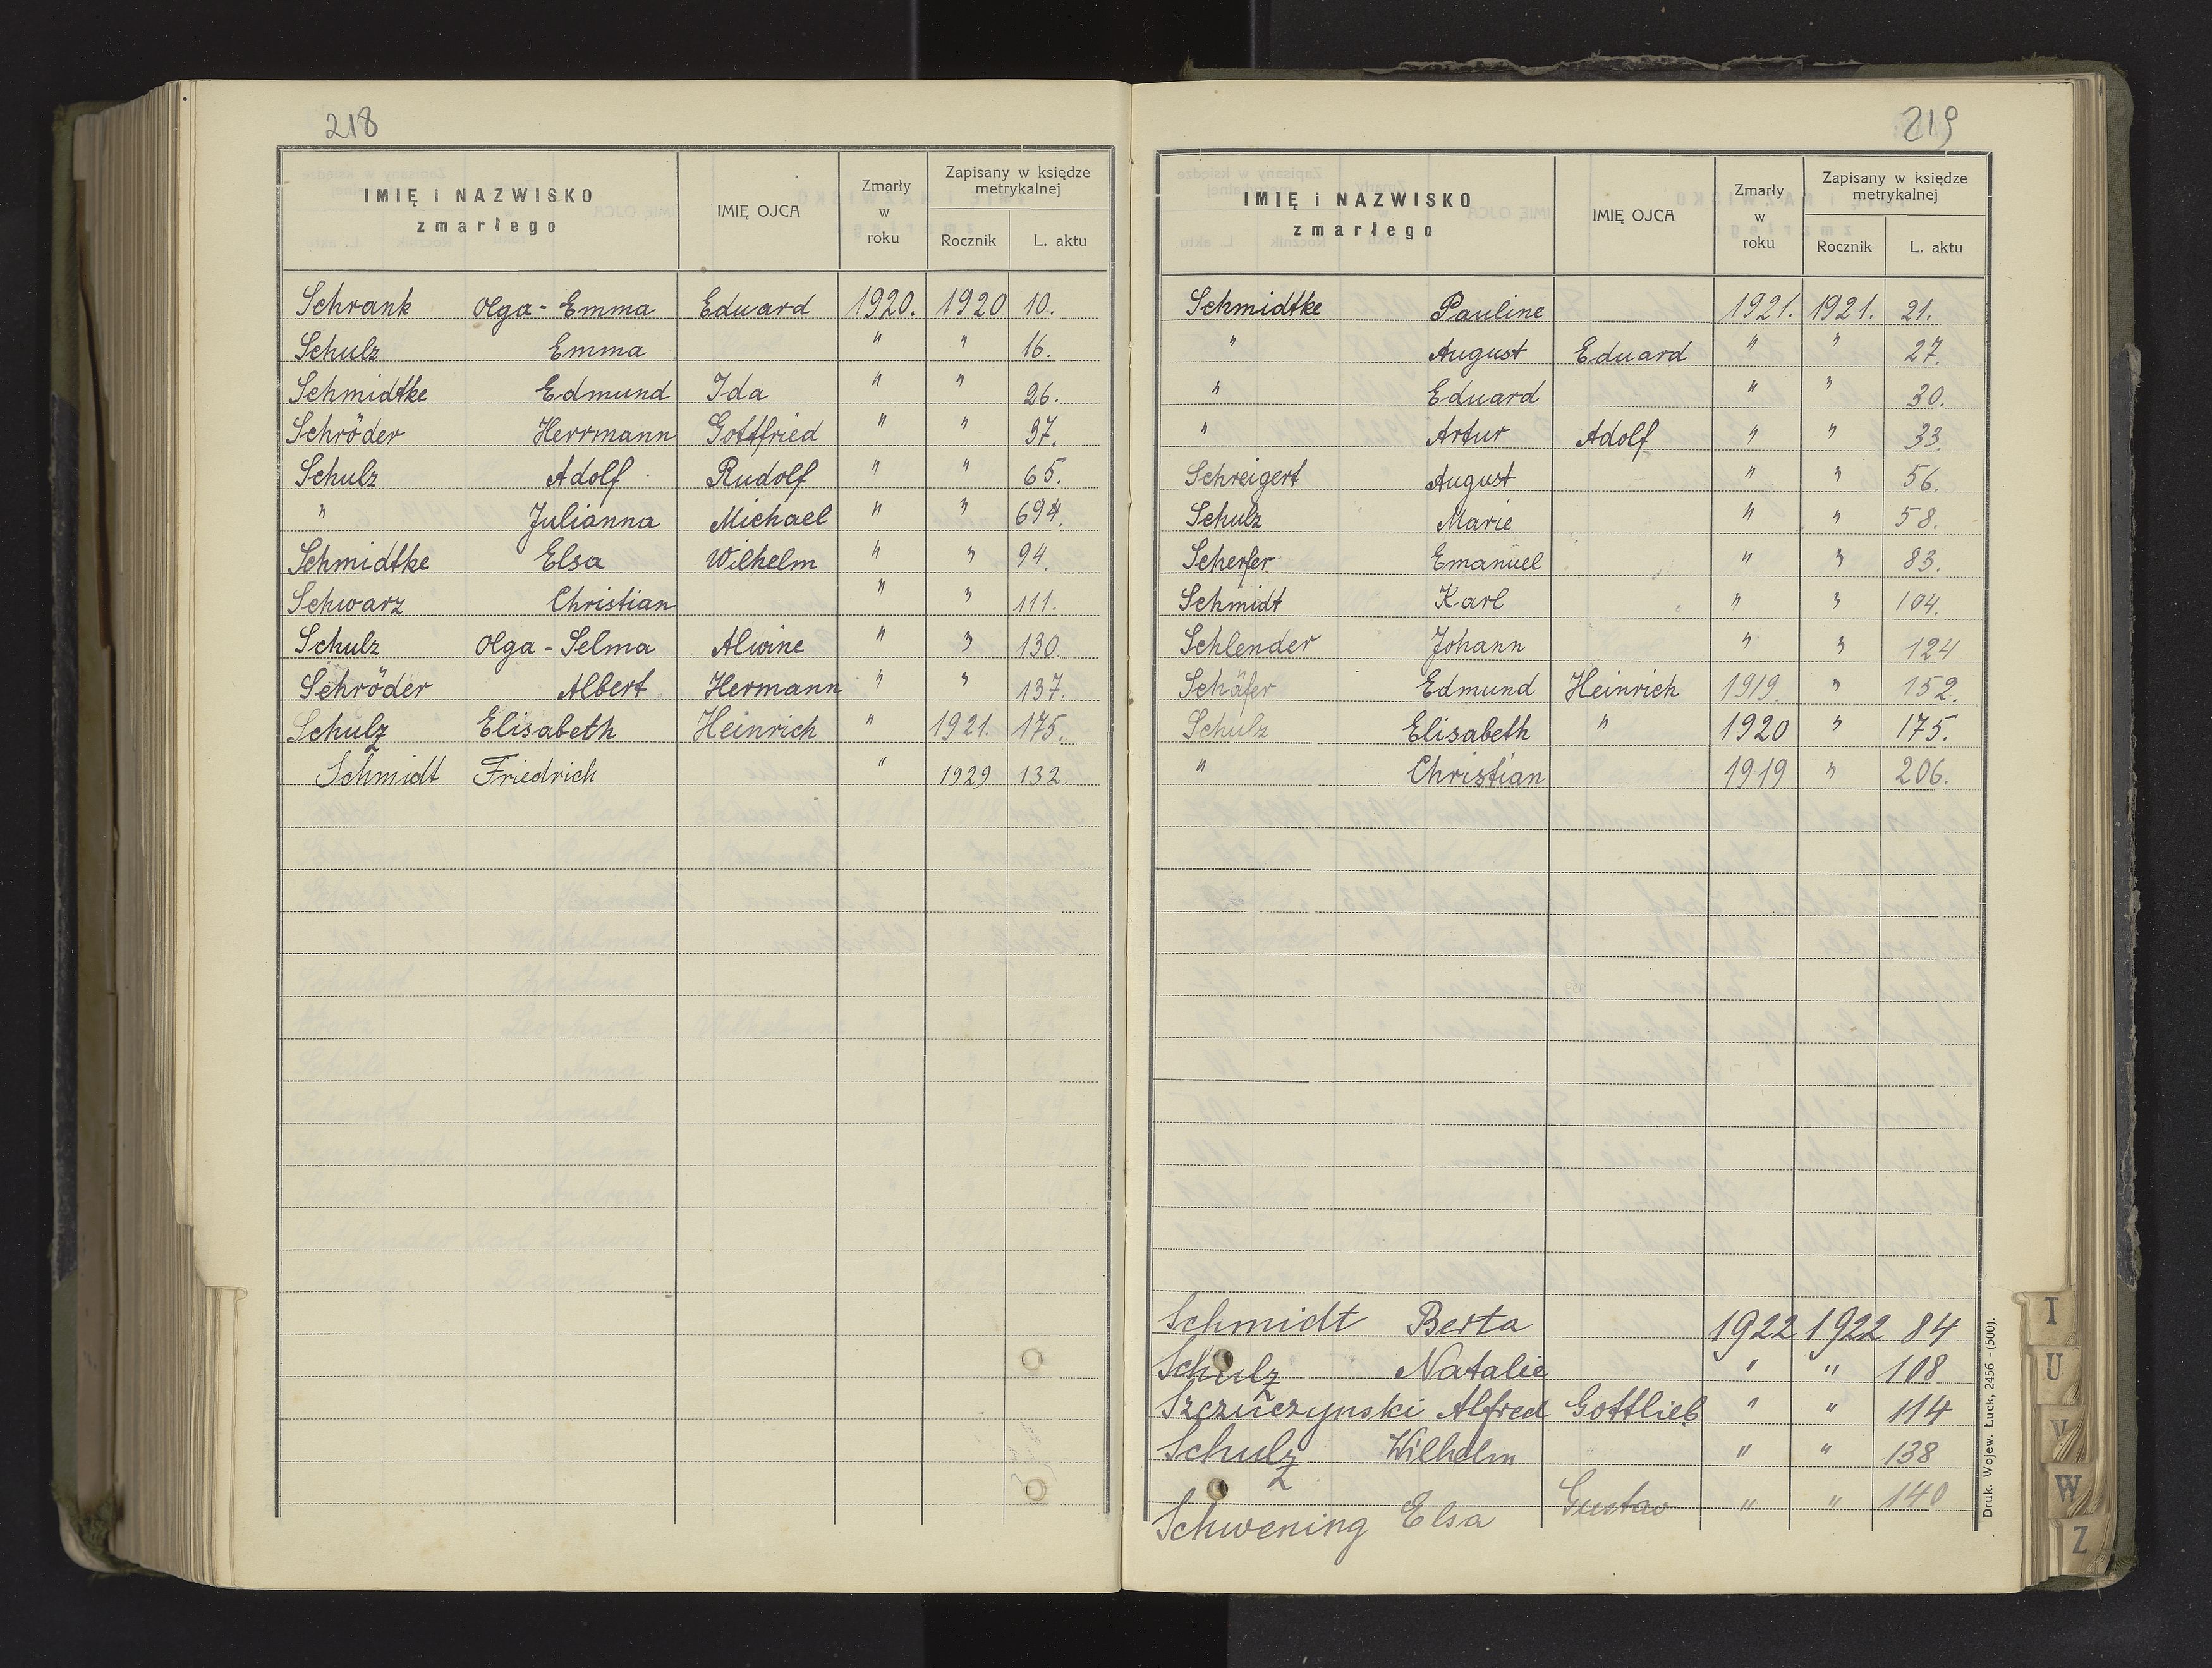 218
IMIĘ i NAZWISKO zmarłego IMIĘ OJCA Zmarły w roku Zapisany w księdze metrykalnej Rocznik L. aktu
Schrank Olga-Emma Eduard 1920. 1920 10.
Schulz Emma " " 16.
Schmidtke Edmund Ida " " 26.
Schröder Herrmann Gottfried " " 37.
Schulz Adolf Rudolf " " 65.
" Julianna Michael " " 694.
Schmidtke Elsa Wilhelm " " 94.
Schwarz Christian " " 111.
Schulz Olga-Selma Alwine " " 130.
Schröder Albert Hermann " " 137.
Schulz Elisabeth Heinrich " 1921. 175.
Schmidt Friedrich " 1929 132.
219
IMIĘ i NAZWISKO zmarłego IMIĘ OJCA Zmarły w roku Zapisany w księdze metrykalnej Rocznik L. aktu
Schmidtke Pauline 1921. 1921. 21.
" August Eduard " " 27.
" Eduard " " 30.
" Artur Adolf " " 33.
Schreigert August " " 56.
Schulz Marie " " 58.
Scherfer Emanuel " " 83.
Schmidt Karl " " 104.
Schlender Johann " " 124
Schäfer Edmund Heinrich 1919. " 152.
Schulz Elisabeth " 1920 " 175.
" Christian 1919 " 206.
Schmidt Berta 1922 1922 84
Schulz Natalie " " 108
Szczuczynski Alfred Gottlieb " " 114
Schulz Wilhelm " " 138
Schwening Elsa Gustav " " 140
Druk. Wojew. Łuck, 2456 - (500).
T
U
V
W
Z